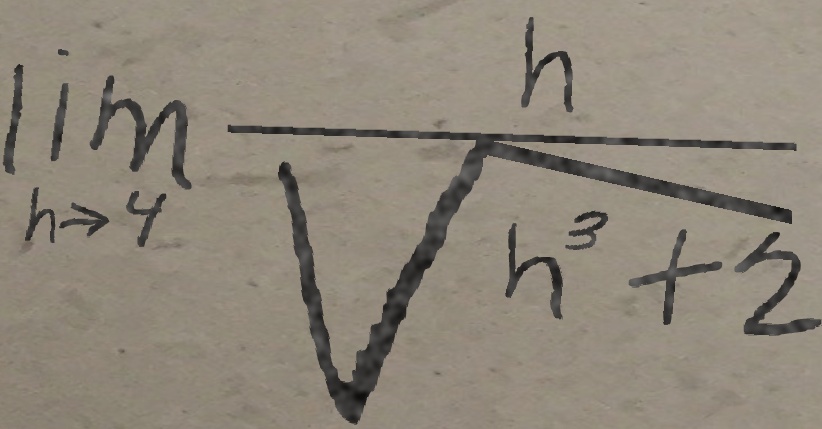 \lim_{h \to 4} \frac{h}{\sqrt{h^3 + 2}}